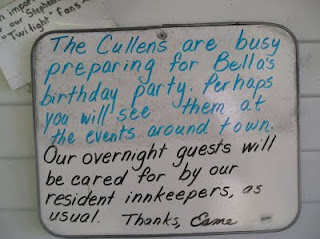 importa
our Stephen
"Twilight fans
The Cullens are busy
preparing for Bella's
birthday party. Perhaps
you will see them at
the events around town.
Our overnight guests will
be cared for by our
resident innkeepers, as
usual. Thanks, Esme